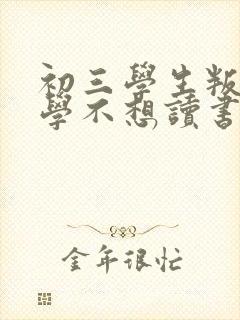 初三學生叛
學不想讀書
金年很忙